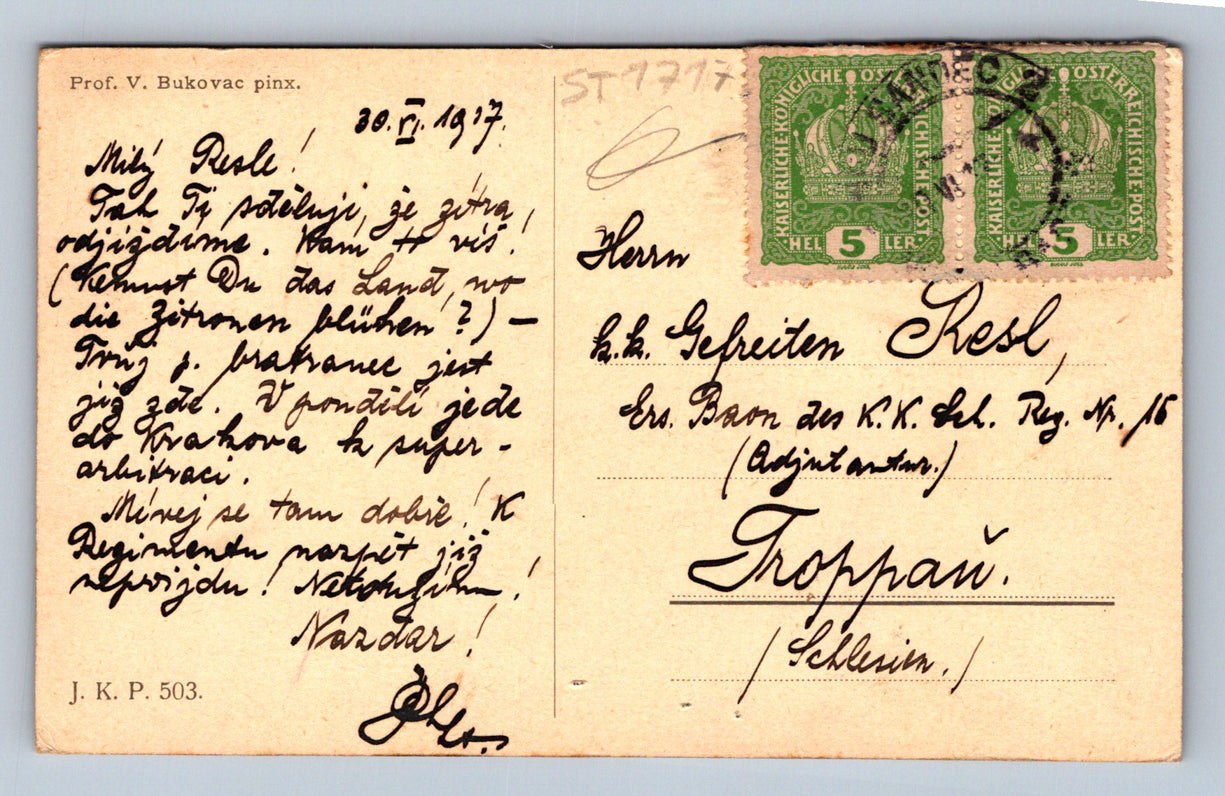 Prof. V. Bukovac pinx.
ST 1717
30. VI. 1917.
Milý Resle!
Tak Ti sděluji, že zítra
odjíždíme. Kam to víš!
(Kennst Du das Land, wo
die Zitronen blühen?) —
Tvůj p. bratranec jest
již zde. V pondělí jede
do Krakova k super-
arbitraci.
Mívej se tam dobře! K
Regimentu nazpět již
nepřijdu! Netoužím!
Nazdar!
J. K. P. 503.
KAISERLICHE KÖNIGLICHE ÖSTERREICHISCHE POST
HEL 5 LER
KAISERLICHE KÖNIGLICHE ÖSTERREICHISCHE POST
HEL 5 LER
SANDEC 2
Herrn
k.k. Gefreiten Resl,
Ers. Baon des K.K. Sch. Reg. Nr. 15
(Adjutantur.)
Troppau.
(Schlesien.)